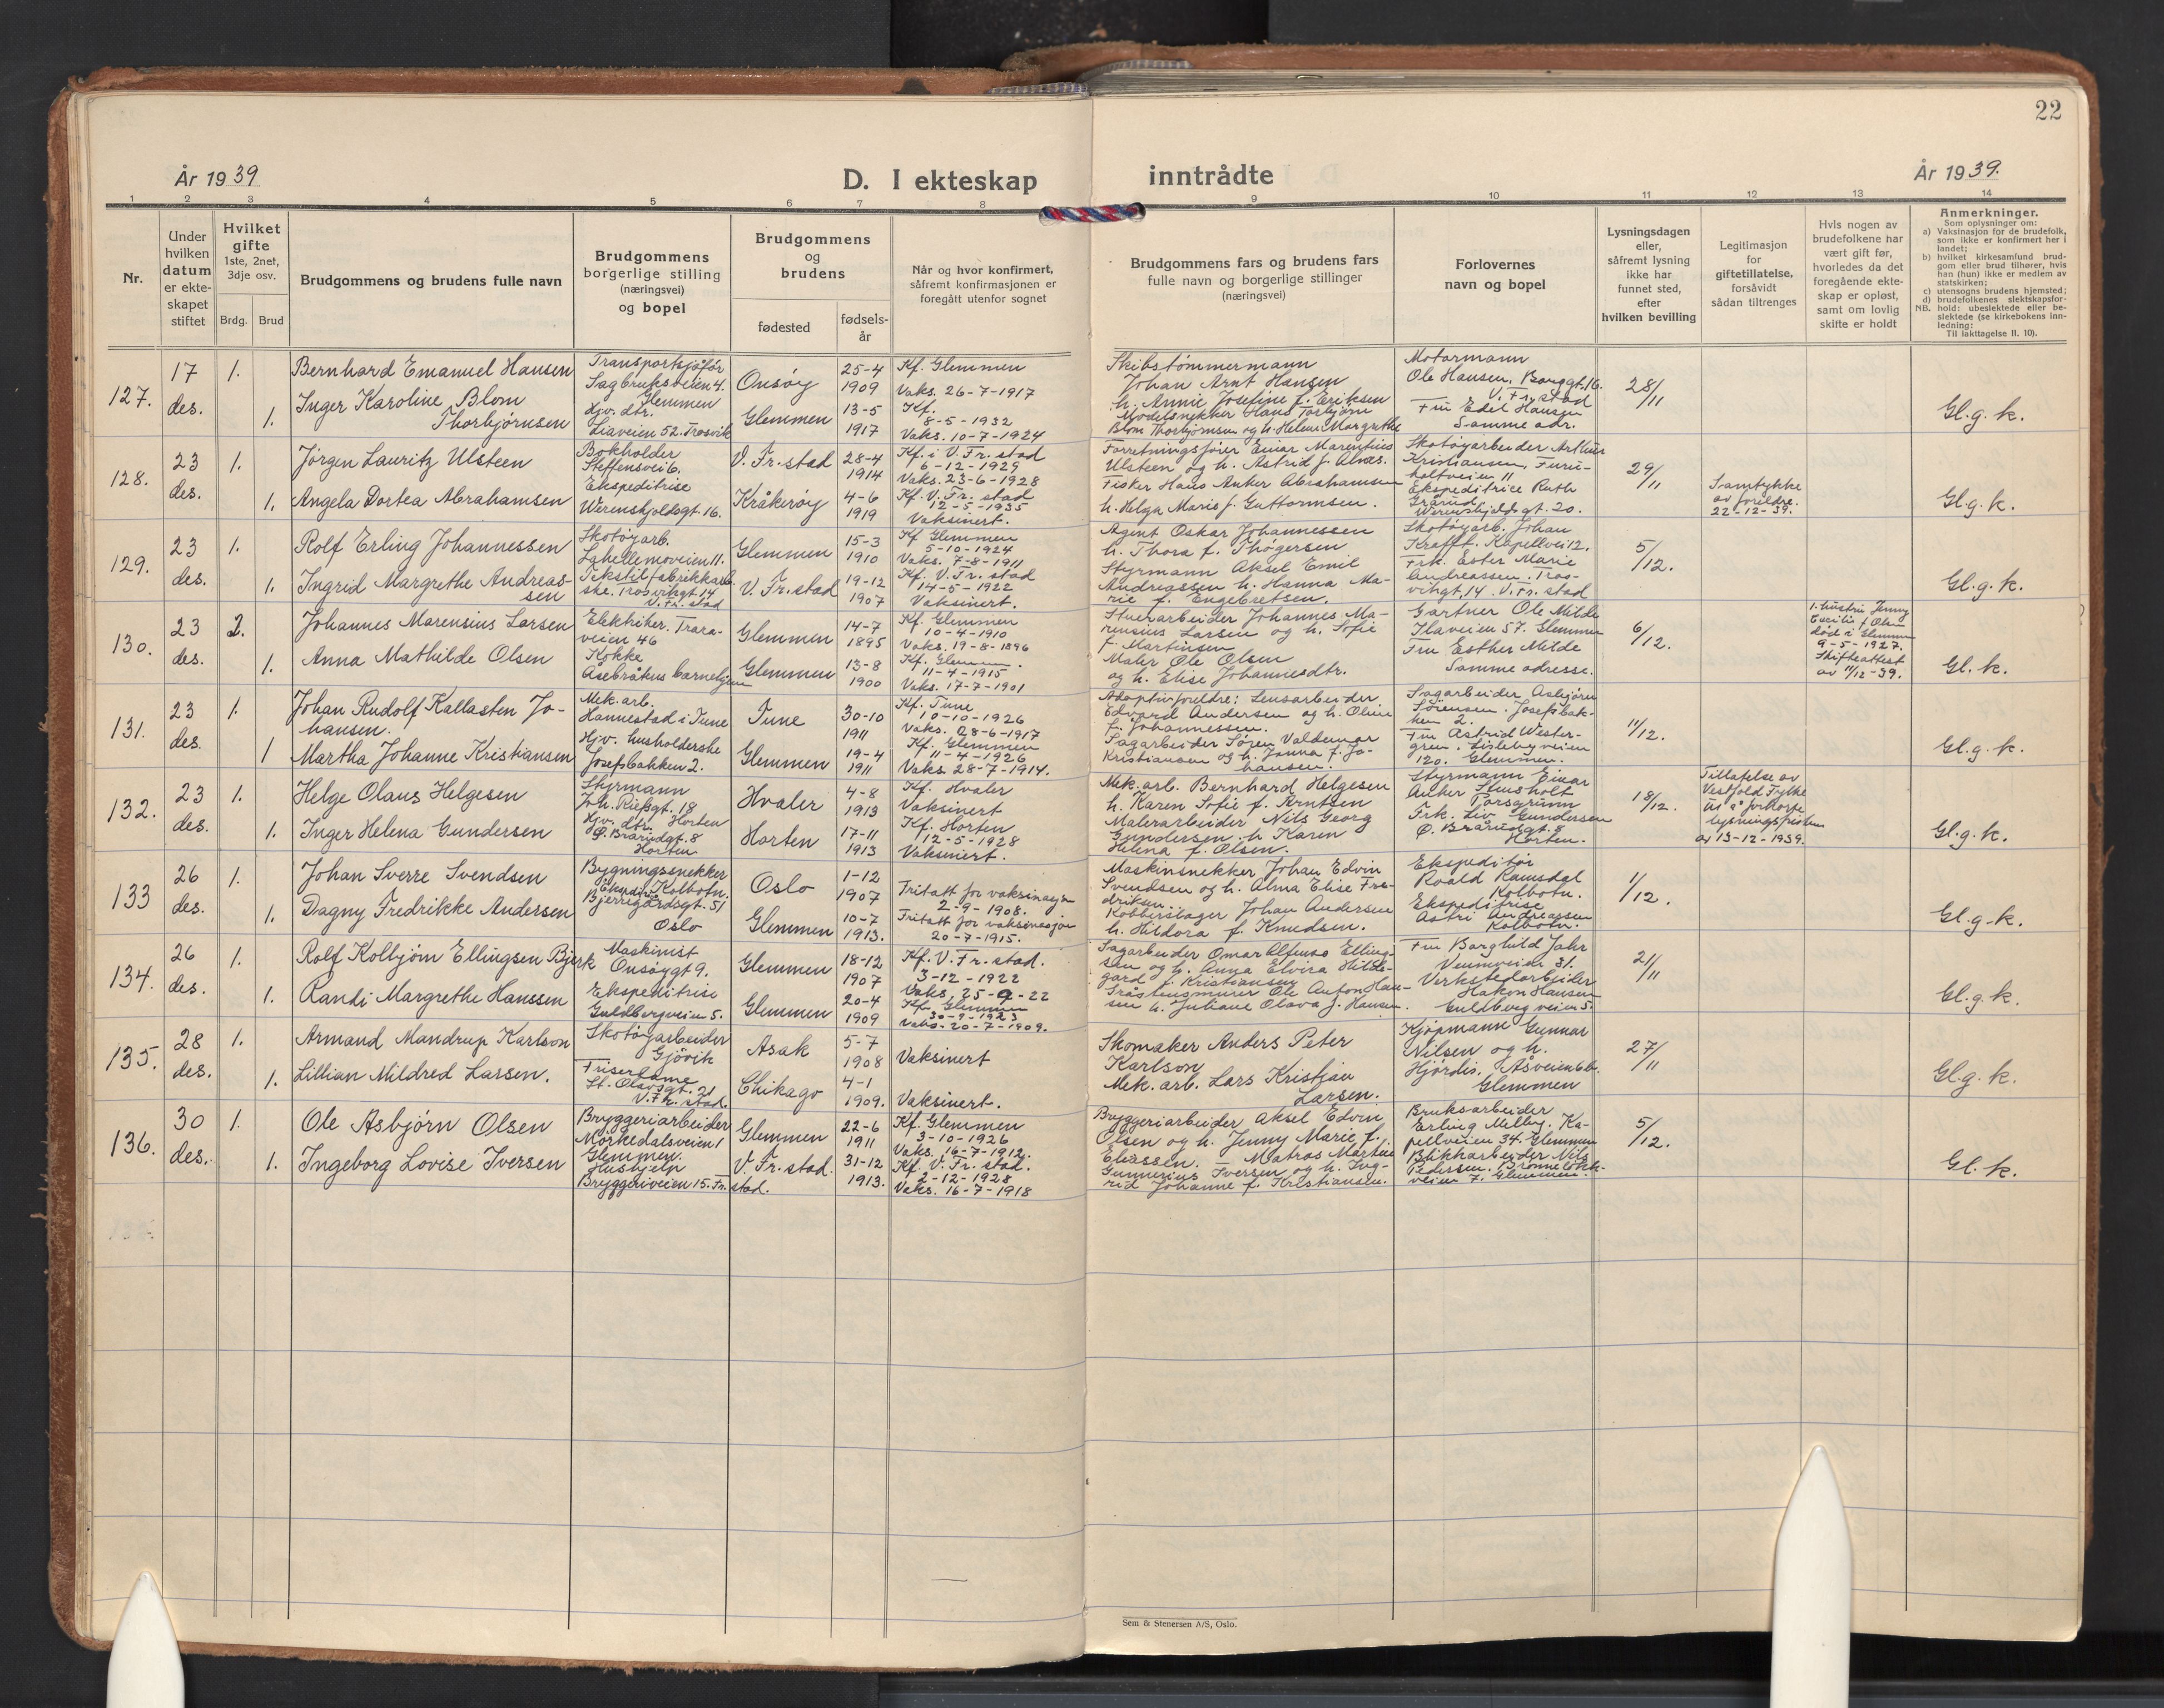 22
År 1939
D. I ekteskap
inntrådte
År 1939.
1 2 3 4 5 6 7 8 9 10 11 12 13 14
Nr.
Under
hvilken
datum
er ekte-
skapet
stiftet
Hvilket
gifte
1ste, 2net,
3dje osv.
Brdg. Brud
Brudgommens og brudens fulle navn
Brudgommens
borgerlige stilling
(næringsvei)
og bopel
Brudgommens
og
brudens
fødested
fødsels-
år
Når og hvor konfirmert,
såfremt konfirmasjonen er
foregått utenfor sognet
Brudgommens fars og brudens fars
fulle navn og borgerlige stillinger
(næringsvei)
Forlovernes
navn og bopel
Lysningsdagen
eller,
såfremt lysning
ikke har
funnet sted,
efter
hvilken bevilling
Legitimasjon
for
giftetillatelse,
forsåvidt
sådan tiltrenges
Hvis nogen av
brudefolkene har
vært gift før,
hvorledes da det
foregående ekte-
skap er opløst,
samt om lovlig
skifte er holdt
Anmerkninger.
Som oplysninger om:
a) Vaksinasjon for de brudefolk,
som ikke er konfirmert her i
landet;
b) hvilket kirkesamfund brud-
gom eller brud tilhører, hvis
han (hun) ikke er medlem av
statskirken;
c) utensogns brudens hjemsted;
d) brudefolkenes slektskapsfor-
hold: ubeslektede eller be-
slektede (se kirkebokens inn-
ledning:
NB. Til iakttagelse II. 10).
127.
17
des.
1.
1.
Bernhard Emanuel Hansen
Inger Karoline Blom
Thorbjørnsen
Transportsjåfør
Sagbruksveien 4.
Glemmen
Hjv. dtr.
Liaveien 52. Trosvik
Onsøy
Glemmen
25-4
1909
13-5
1917
Kf. Glemmen
Vaks. 26-7-1917
Kf.
8-5-1932
Vaks. 10-7-1924
Skibstømmermann
Johan Arnt Hansen
h. Annie Josefine f. Eriksen
Modelsnekker Hans Torbjørn
Blom Thorbjørnsen og h. Helene Margrethe
Motormann
Ole Hansen, Borggt. 16.
V. Fr. stad
Fru Edel Hansen
Samme adr.
28/11
Gl.g.k.
128.
23
des.
1.
1.
Jørgen Lauritz Ulsteen
Angela Dortea Abrahamsen
Bokholder
Steffensvei 6.
Ekspeditrise
Werenskjoldsgt. 16.
V. Fr. stad
Kråkerøy
28-4
1914
4-6
1919
Kf. i V. Fr. stad
6-12-1929
Vaks. 23-6-1928
Kf. V. Fr. stad
12-5-1935
Vaksinert.
Forretningsfører Einar Marentius
Ulsteen og h. Astrid f. Alnes.
Fisker Hans Anker Abrahamsen
h. Helga Marie f. Guttormsen.
Skotøyarbeider Arthur
Kristiansen, Furu-
holtveien 11
Ekspeditrice Ruth
Grårud
Werenskjolds gt. 20.
29/11
Samtykke
av foreldre.
22-12-39.
Gl.g.k.
129.
23
des.
1.
1.
Rolf Erling Johannessen
Ingrid Margrethe Andreas-
sen
Skotøyarb.
Lahellemoveien 11.
Tekstilfabrikkarb.
ske. Trosvikgt. 14
V. Fr. stad
Glemmen
V. Fr. stad
15-3
1910
19-12
1907
Kf Glemmen
5-10-1924
Vaks. 7-8-1911
Kf. V. Fr. stad
14-5-1922
Vaksinert.
Agent Oskar Johannessen
h. Thora f. Thøgersen
Styrmann Aksel Emil
Andreassen h. Hanna Ma-
rie f. Engebretsen.
Skotøyarb. Johan
Krafft. Kapellvei 12.
Frk. Ester Marie
Andreassen. Tros-
vikgt. 14. V. Fr. stad
5/12.
Gl.g.k.
130.
23
des.
2.
1.
Johannes Marensius Larsen
Anna Mathilde Olsen
Elektriker. Trara-
veien 46
Kokke
Åsebråkus barnehjem
Glemmen
Glemmen
14-7
1895
13-8
1900
Kf. Glemmen
10-4-1910
Vaks. 19-8-1896
Kf. Glemmen.
11-4-1915
Vaks. 17-7-1901
Stuerarbeider Johannes Ma-
rensius Larsen og h. Sofie
f. Martinsen
Maler Ole Olsen
og h. Elise Johannesdtr.
Gartner Ole Milde
Ilaveien 57. Glemmen
Fru Esther Milde
Samme adresse.
6/12.
1. hustru Jenny
Cecilie f. Olsen
død i Glemmen
9-5-1927.
Skifteattest
av 11/12-39.
Gl.k.
131.
23
des.
1.
1
Johan Rudolf Kallasten Jo-
hansen.
Martha Johanne Kristiansen
Mek. arb.
Hannestad i Tune
Hjv. husholderske
Josefsbakken 2.
Tune
Glemmen
30-10
1911
19-4
1911
Kf. Tune
10-10-1926
Vaks. 28-6-1917
Kf. Glemmen
11-4-1926
Vaks 28-7-1914.
Adoptivforeldre: Lensarbeider
Edvard Andersen og h. Oline
f. Johannessen.
Sagarbeider Søren Valdemar
Kristiansen og h. Janna f. Jo-
hansen.
Sagarbeider Asbjørn
Sørensen. Josefsbak-
ken 2.
Fru Astrid Wester-
gren. Lislebyveien
120. Glemmen.
11/12.
Gl.g.k.
132.
23
des.
1.
1.
Helge Olaus Helgesen
Inger Helena Gundersen
Styrmann
Joh. Riefsgt. 18
Horten
Hjv. dtr.
Ø. Brårudgt. 8
Horten
Hvaler
Horten
4-8
1913
17-11
1913
Kf. Hvaler
Vaksinert
Kf. Horten
12-5-1928
Vaksinert.
Mek. arb. Bernhard Helgesen
h. Karen Sofie f. Arntsen
Malerarbeider Nils Georg
Gundersen. h. Karen
Helena f. Olsen.
Styrmann Einar
Anker Stensholt
Porsgrunn
Frk. Liv Gundersen
Ø. Brårudgt. 8
Horten.
18/12.
Tillatelse av
Vestfold Fylke
til å forkorte
lysningsfristen
av 13-12-1939.
Gl.g.k.
133
26
des.
1.
1.
Johan Sverre Svendsen
Dagny Fredrikke Andersen
Bygningssnekker
Kolbotn.
Bjerregårdsgt. 51
Oslo
Oslo
Glemmen
1-12
1907
10-7
1913.
Fritatt for vaksinasjon
2-9-1908.
Fritatt for vaksinasjon
20-7-1915.
Maskinsnekker Johan Edvin
Svendsen og h. Alma Elise Fre-
driksen.
Kobberslager Johan Andersen
h. Hildora f. Knudsen.
Ekspeditør
Roald Ramsdal
Kolbotn.
Ekspeditrise
Astri Andreassen
Kolbotn.
1/12.
Gl.g.k.
134.
26
des.
1.
1.
Rolf Kolbjørn Ellingsen Bjerk
Randi Margrethe Hanssen
Maskinist
Onsøygt 9.
Ekspeditrise
Guldbergveien 5.
Glemmen
Glemmen
18-12
1907
20-4
1909
Kf. V. Fr. stad.
3-12-1922
Vaks. 25-9-22
Kf. Glemmen
30-9-1923
Vaks. 20-7-1909.
Sagarbeider Omar Alfonso Elling-
sen og h. Anna Elvira Hilde-
gard f. Kristiansen
Gråstensmurer Ole Anton Han-
sen h. Juliane Olava f. Hansen
Fru Borghild Jahr
Veumveien 31.
Verkstedarbeider
Håkon Hansen
Guldberg veien 5.
21/11
Gl.g.k.
135.
28
des.
1.
1.
Armand Mandrup Karlson
Lillian Mildred Larsen.
Skotøyarbeider
Gjøvik
Friserdame
St. Olavsgt. 21
V. Fr. stad.
Asak
Chikago
5-7
1908
4-1
1909.
Vaksinert
Vaksinert.
Skomaker Anders Peter
Karlson
Mek. arb. Lars Kristian
Larsen.
Kjøpmann Gunnar
Nilsen og h.
Hjørdis. Åsveien 6b.
Glemmen
27/11
Gl.g.k.
136.
30
des.
1.
1.
Ole Asbjørn Olsen
Ingeborg Lovise Iversen
Bryggeriarbeider
Mørkedalsveien 1
Glemmen.
Hushjelp
Bryggeriveien 15. Fr. stad.
Glemmen
V. Fr. stad.
22-6
1911
31-12
1913.
Kf. Glemmen
3-10-1926
Vaks. 16-7-1912.
Kf. V. Fr. stad.
2-12-1928
Vaks. 16-7-1918
Bryggeriarbeider Aksel Edvin
Olsen og h. Jenny Marie f.
Eliassen. Matros Martin
Gunnerius Iversen og h. Ing-
rid Johanne f. Kristiansen.
Bruksarbeider
Erling Melby. Ka-
pellveien 34. Glemmen
Blikkarbeider Nils
Pedersen. Brønneløkk-
veien 7. Glemmen.
5/12.
Gl.k.
Sem & Stenersen A/S, Oslo.